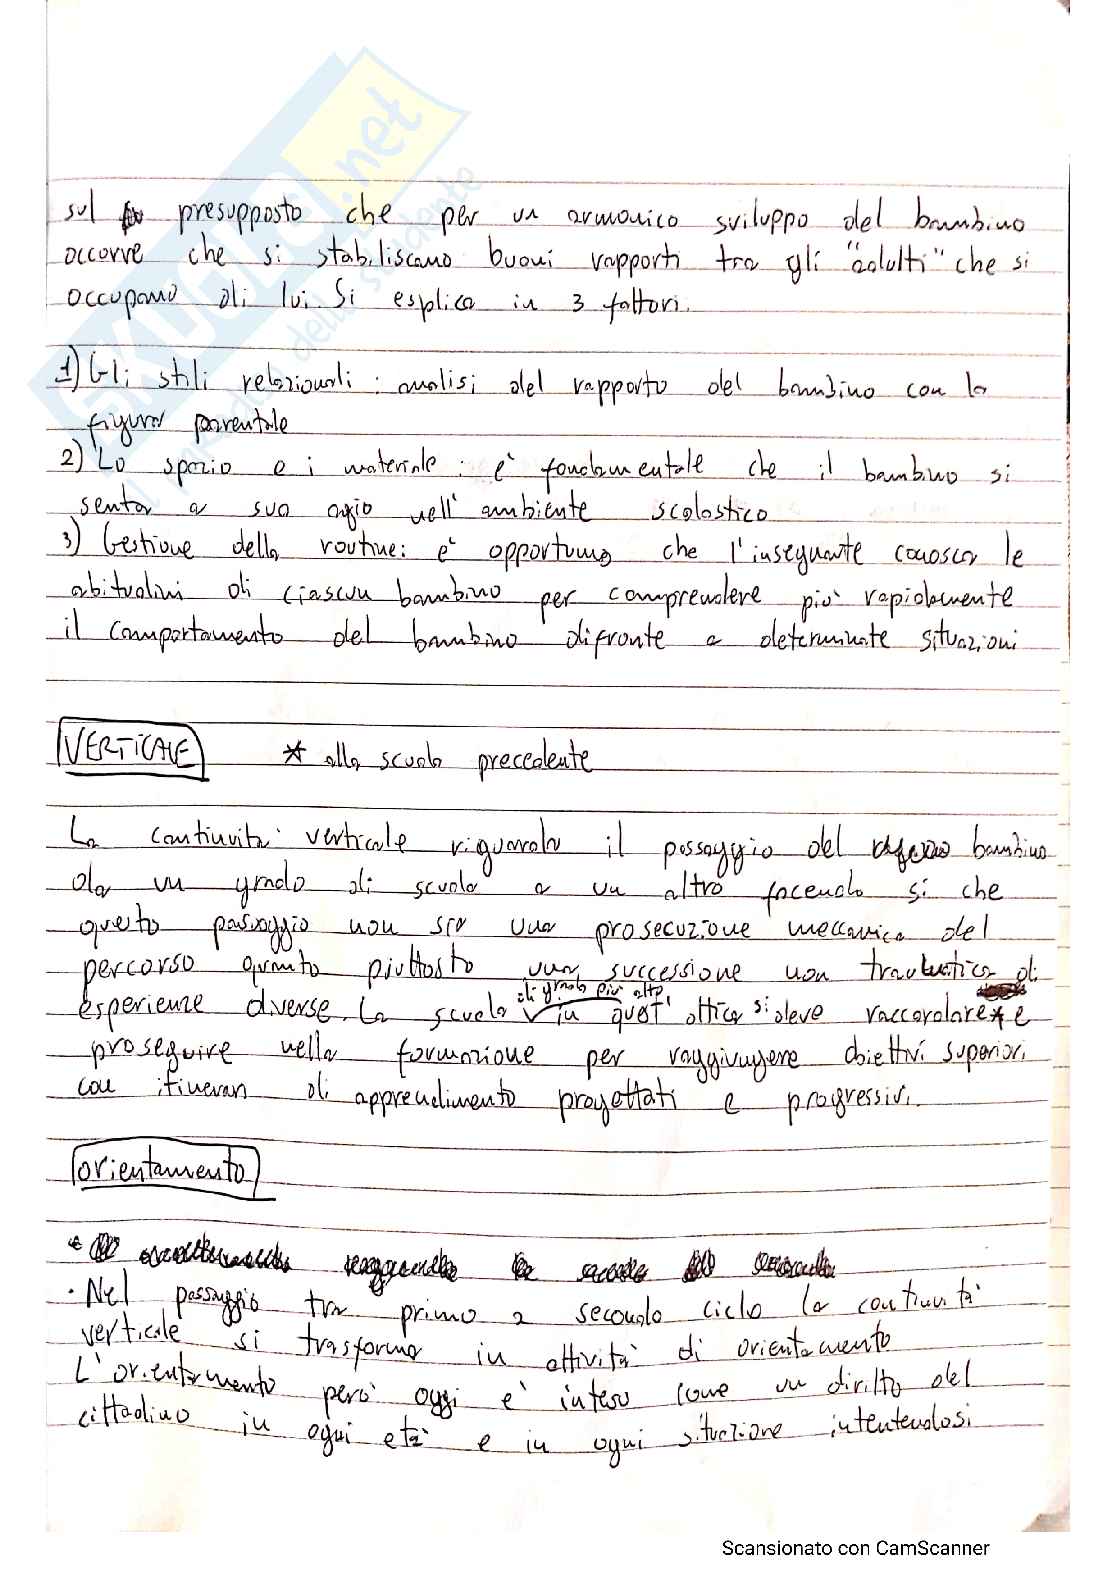 sul presupposto che per un armonico sviluppo del bambino
occorre che si stabiliscano buoni rapporti tra gli "adulti" che si
occupano di lui. Si esplica in 3 fattori.
1) Gli stili relazionali: analisi del rapporto del bambino con la
figura parentale
2) Lo spazio e i materiale: e' fondamentale che il bambino si
senta a suo agio nell'ambiente scolastico
3) Gestione della routine: e' opportuno che l'insegnante conosca le
abitudini di ciascun bambino per comprendere più rapidamente
il comportamento del bambino difronte a determinate situazioni
VERTICALE * alla scuola precedente
La continuità verticale riguarda il passaggio del bambino
da un grado di scuola a un altro facendo si che
questo passaggio non sia una prosecuzione meccanica del
percorso quanto piuttosto una successione non traumatica di
di grado più alto
esperienze diverse. La scuola in quest'ottica si deve raccordare * e
proseguire nella formazione per raggiungere obiettivi superiori
con itinerari di apprendimento progettati e progressivi.
orientamento
· Nel passaggio tra primo a secondo ciclo la continuità
verticale si trasforma in attività di orientamento
L'orientamento però oggi e' inteso come un diritto del
cittadino in ogni età e in ogni situazione intentendosi
Scansionato con CamScanner
SKUOLA.net
il paradiso dello studente